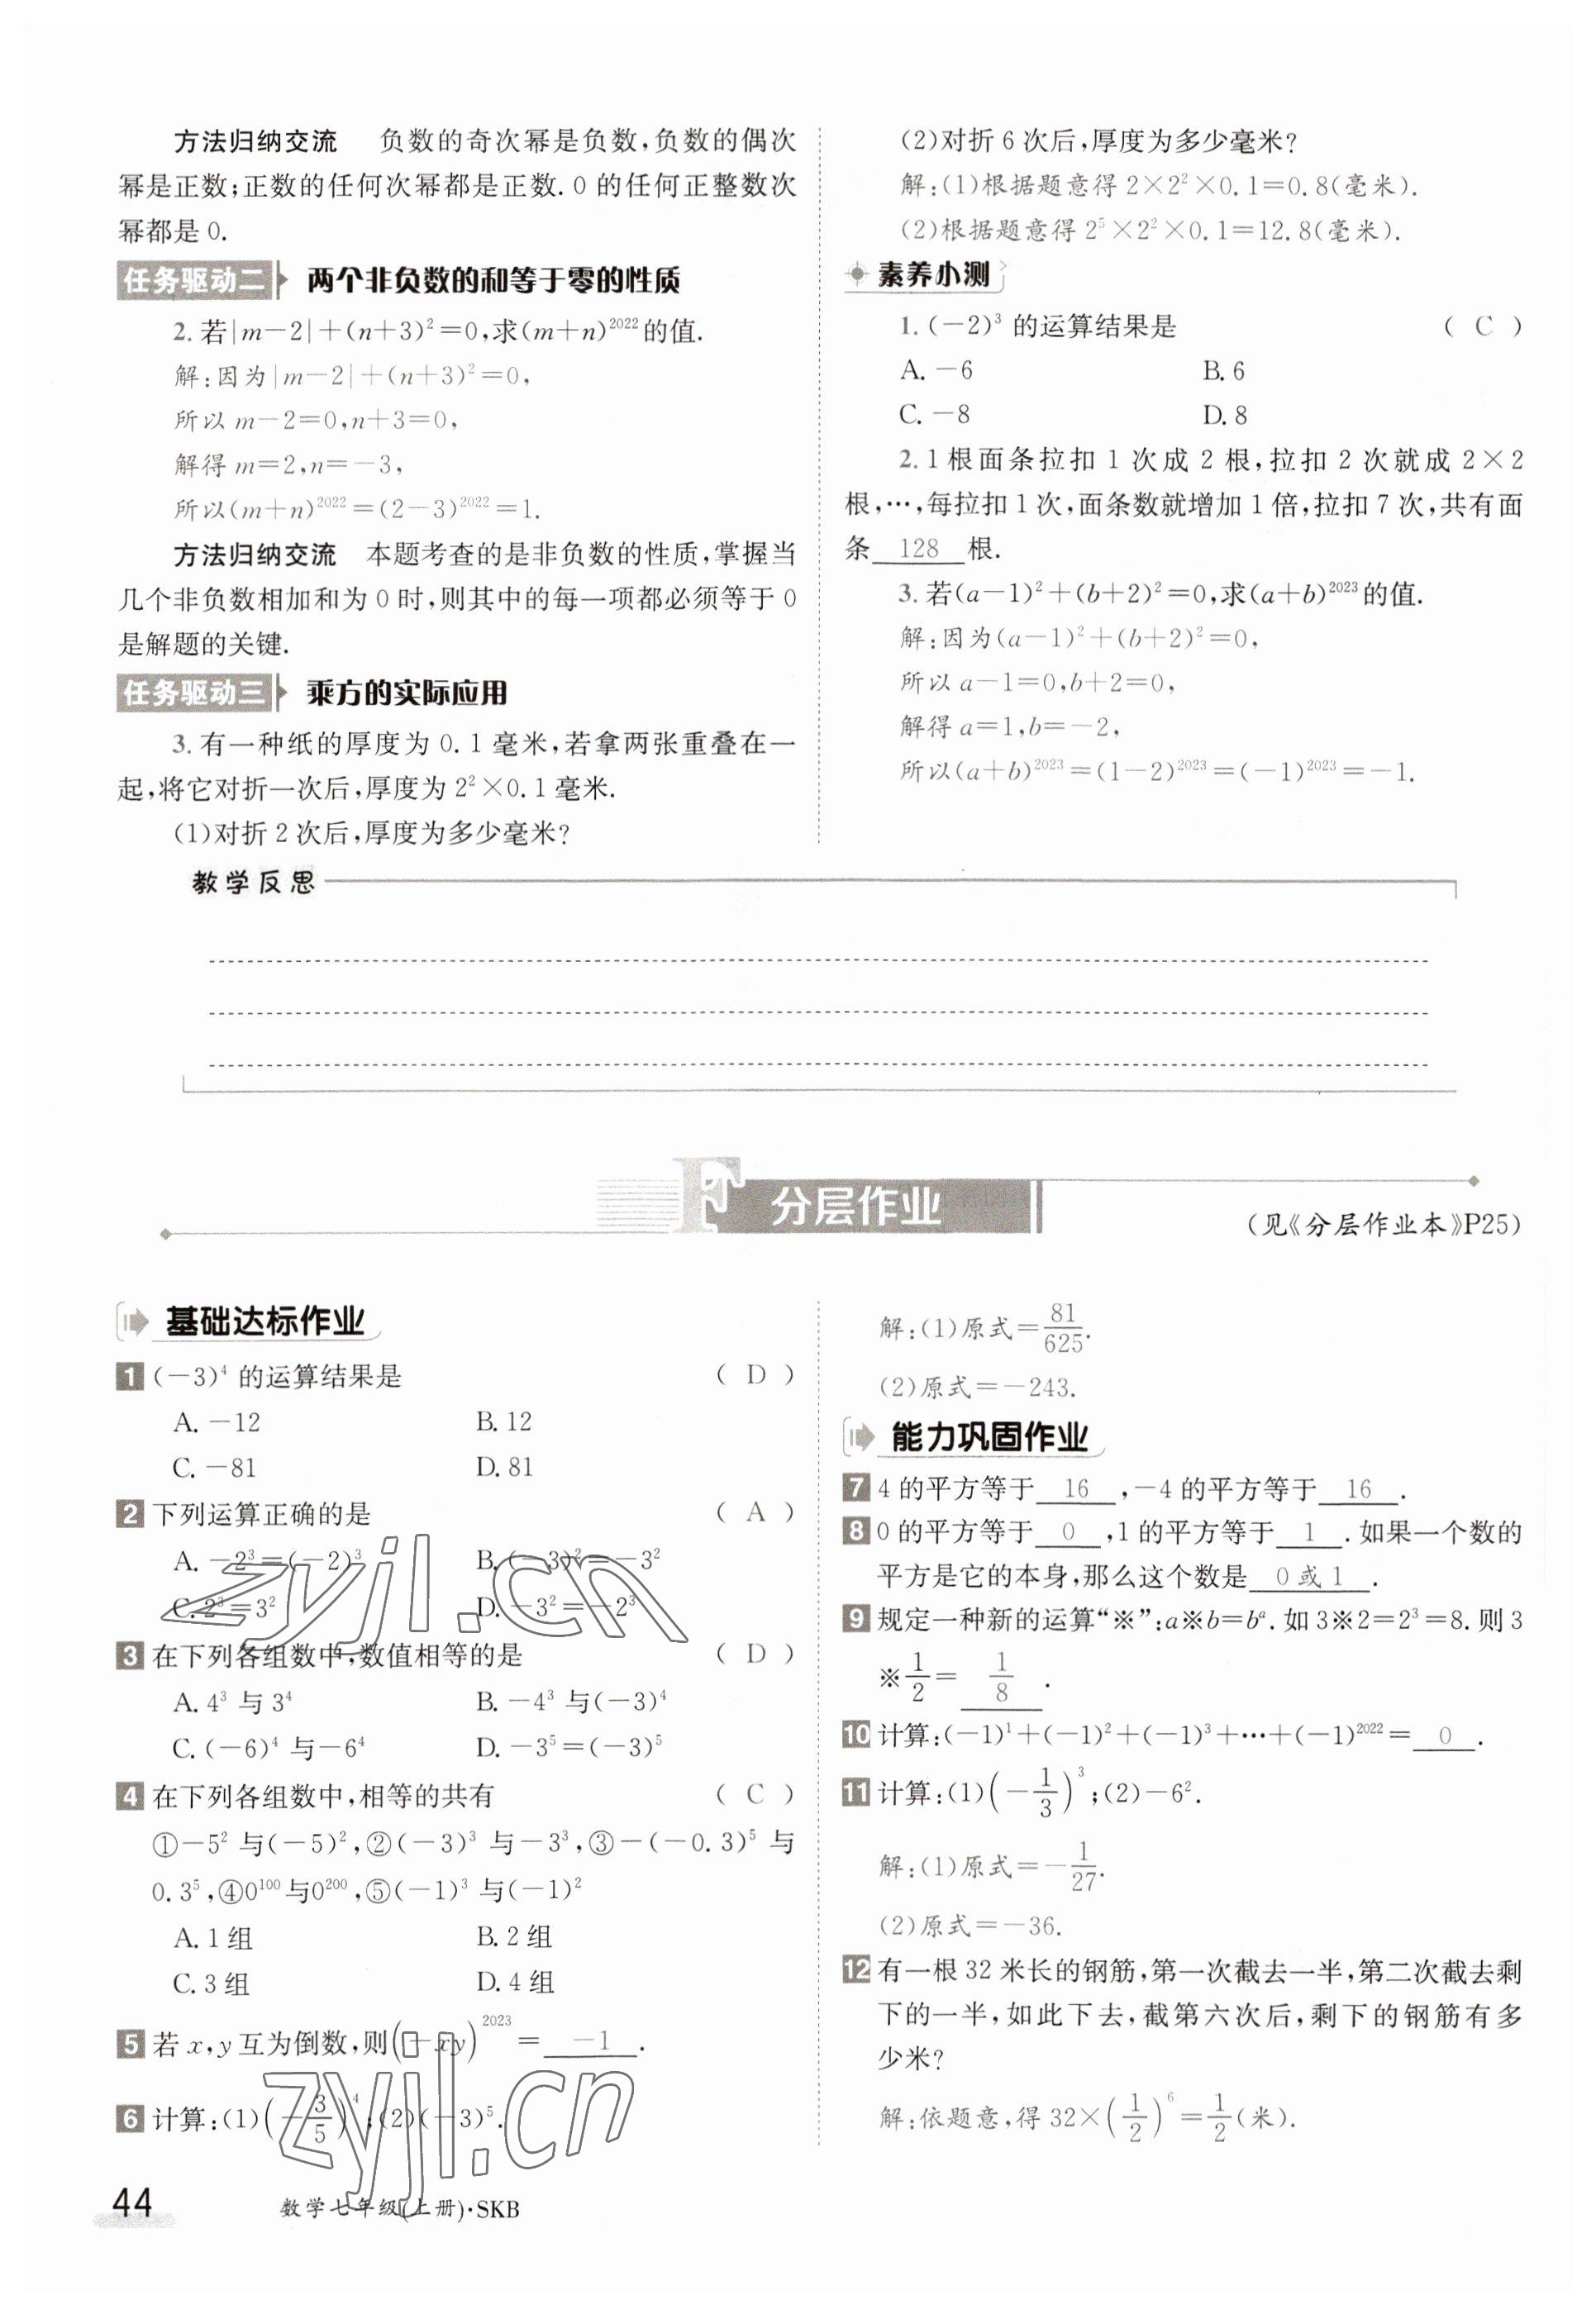 方法归纳交流 负数的奇次幂是负数,负数的偶次
幂是正数;正数的任何次幂都是正数.0的任何正整数次
幂都是0.
任务驱动二 两个非负数的和等于零的性质
2.若|m-2|+(n+3)²=0,求(m+n)²⁰²²的值.
解:因为|m-2|+(n+3)²=0,
所以m-2=0,n+3=0,
解得m=2,n=-3,
所以(m+n)²⁰²²=(2-3)²⁰²²=1.
方法归纳交流 本题考查的是非负数的性质,掌握当
几个非负数相加和为0时,则其中的每一项都必须等于0
是解题的关键.
任务驱动三 乘方的实际应用
3.有一种纸的厚度为0.1毫米,若拿两张重叠在一
起,将它对折一次后,厚度为2²×0.1毫米.
(1)对折2次后,厚度为多少毫米?
(2)对折6次后,厚度为多少毫米?
解:(1)根据题意得2×2²×0.1=0.8(毫米).
(2)根据题意得2⁵×2²×0.1=12.8(毫米).
素养小测
1.(-2)³的运算结果是 ( C )
A.-6 B.6
C.-8 D.8
2.1根面条拉扣1次成2根,拉扣2次就成2×2
根,…,每拉扣1次,面条数就增加1倍,拉扣7次,共有面
条 128 根.
3.若(a-1)²+(b+2)²=0,求(a+b)²⁰²³的值.
解:因为(a-1)²+(b+2)²=0,
所以a-1=0,b+2=0,
解得a=1,b=-2,
所以(a+b)²⁰²³=(1-2)²⁰²³=(-1)²⁰²³=-1.
教学反思
F 分层作业
(见《分层作业本》P25)
基础达标作业
1 (-3)⁴的运算结果是 ( D )
A.-12 B.12
C.-81 D.81
2 下列运算正确的是 ( A )
A.-2³=(-2)³ B.(-3)²=-3²
C.2³=3² D.-3²=-2³
3 在下列各组数中,数值相等的是 ( D )
A.4³与3⁴ B.-4³与(-3)⁴
C.(-6)⁴与-6⁴ D.-3⁵=(-3)⁵
4 在下列各组数中,相等的共有 ( C )
①-5²与(-5)²,②(-3)³与-3³,③-(-0.3)⁵与
0.3⁵,④0¹⁰⁰与0²⁰⁰,⑤(-1)³与(-1)²
A.1组 B.2组
C.3组 D.4组
5 若x,y互为倒数,则(-xy)²⁰²³= -1 .
6 计算:(1)(-3/5)⁴;(2)(-3)⁵.
解:(1)原式=81/625.
(2)原式=-243.
能力巩固作业
7 4的平方等于 16 ,-4的平方等于 16 .
8 0的平方等于 0 ,1的平方等于 1 .如果一个数的
平方是它的本身,那么这个数是 0或1 .
9 规定一种新的运算“※”:a※b=bᵃ.如3※2=2³=8.则3
※1/2= 1/8 .
10 计算:(-1)¹+(-1)²+(-1)³+…+(-1)²⁰²²= 0 .
11 计算:(1)(-1/3)³;(2)-6².
解:(1)原式=-1/27.
(2)原式=-36.
12 有一根32米长的钢筋,第一次截去一半,第二次截去剩
下的一半,如此下去,截第六次后,剩下的钢筋有多
少米?
解:依题意,得32×(1/2)⁶=1/2(米).
zyjl.cn
zyjl.cn
44 数学七年级(上册)·SKB